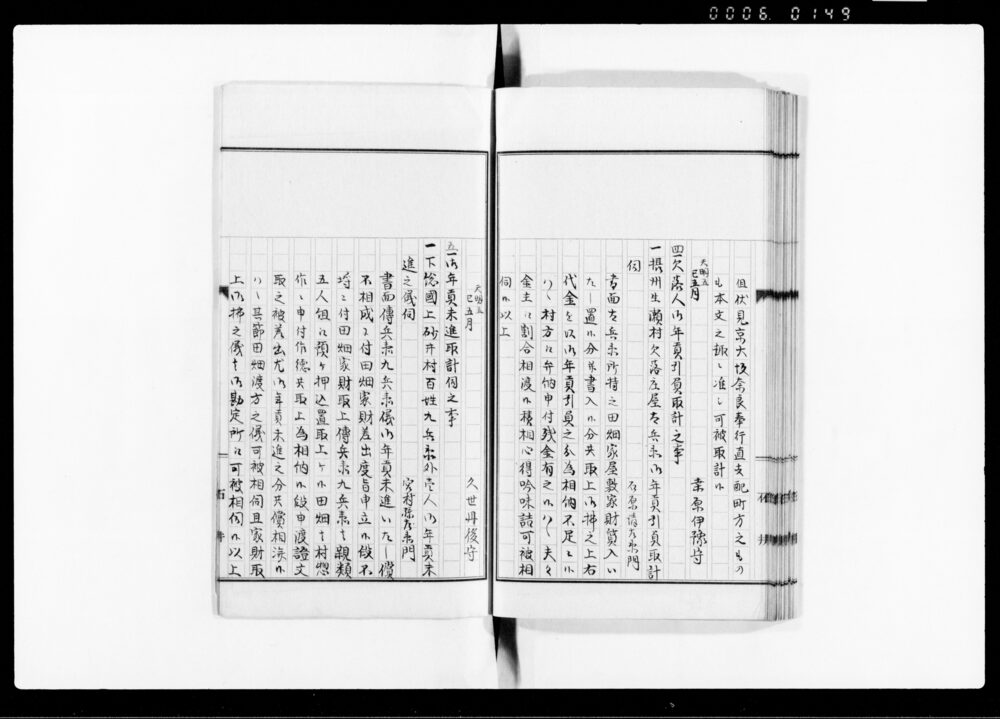 0006 0149
但伏見京大坂奈良奉行直支配町方之もの
も本文之趣ニ准シ可被取計候
天明五
巳五月
桑原伊豫守
四欠落人御年貢引負取計之事
一摂州生瀬村欠落庄屋左兵衛御年貢引負取計
伺
書面左兵衛所持之田畑家屋敷家財質入い
たし置候分并書入候分共取上御拂之上右
代金を以御年貢引負之分為相納不足ニ候
ハヽ村方江弁納申付残金有之候ハヽ夫々
金主江割合相渡候積相心得吟味詰可被相
伺候以上
天明五
巳五月
久世丹後守
五御年貢未進取計伺之事
一下総國上砂井村百姓九兵衛外壱人御年貢未
進之儀伺
書面傳兵衛九兵衛儀御年貢未進いたし償
不相成ニ付田畑家財差出度旨申立候段不
埒ニ付田畑家財取上傳兵衛九兵衛ハ親類
五人組江預ケ押込置取上ケ候田畑ハ村惣
作ニ申付作徳共取上為相納候段申渡證文
取之被差出尤御年貢未進之分共償相済候
ハヽ其節田畑渡方之儀可被相伺且家財取
上御拂之儀ハ御勘定所江可被相伺候以上